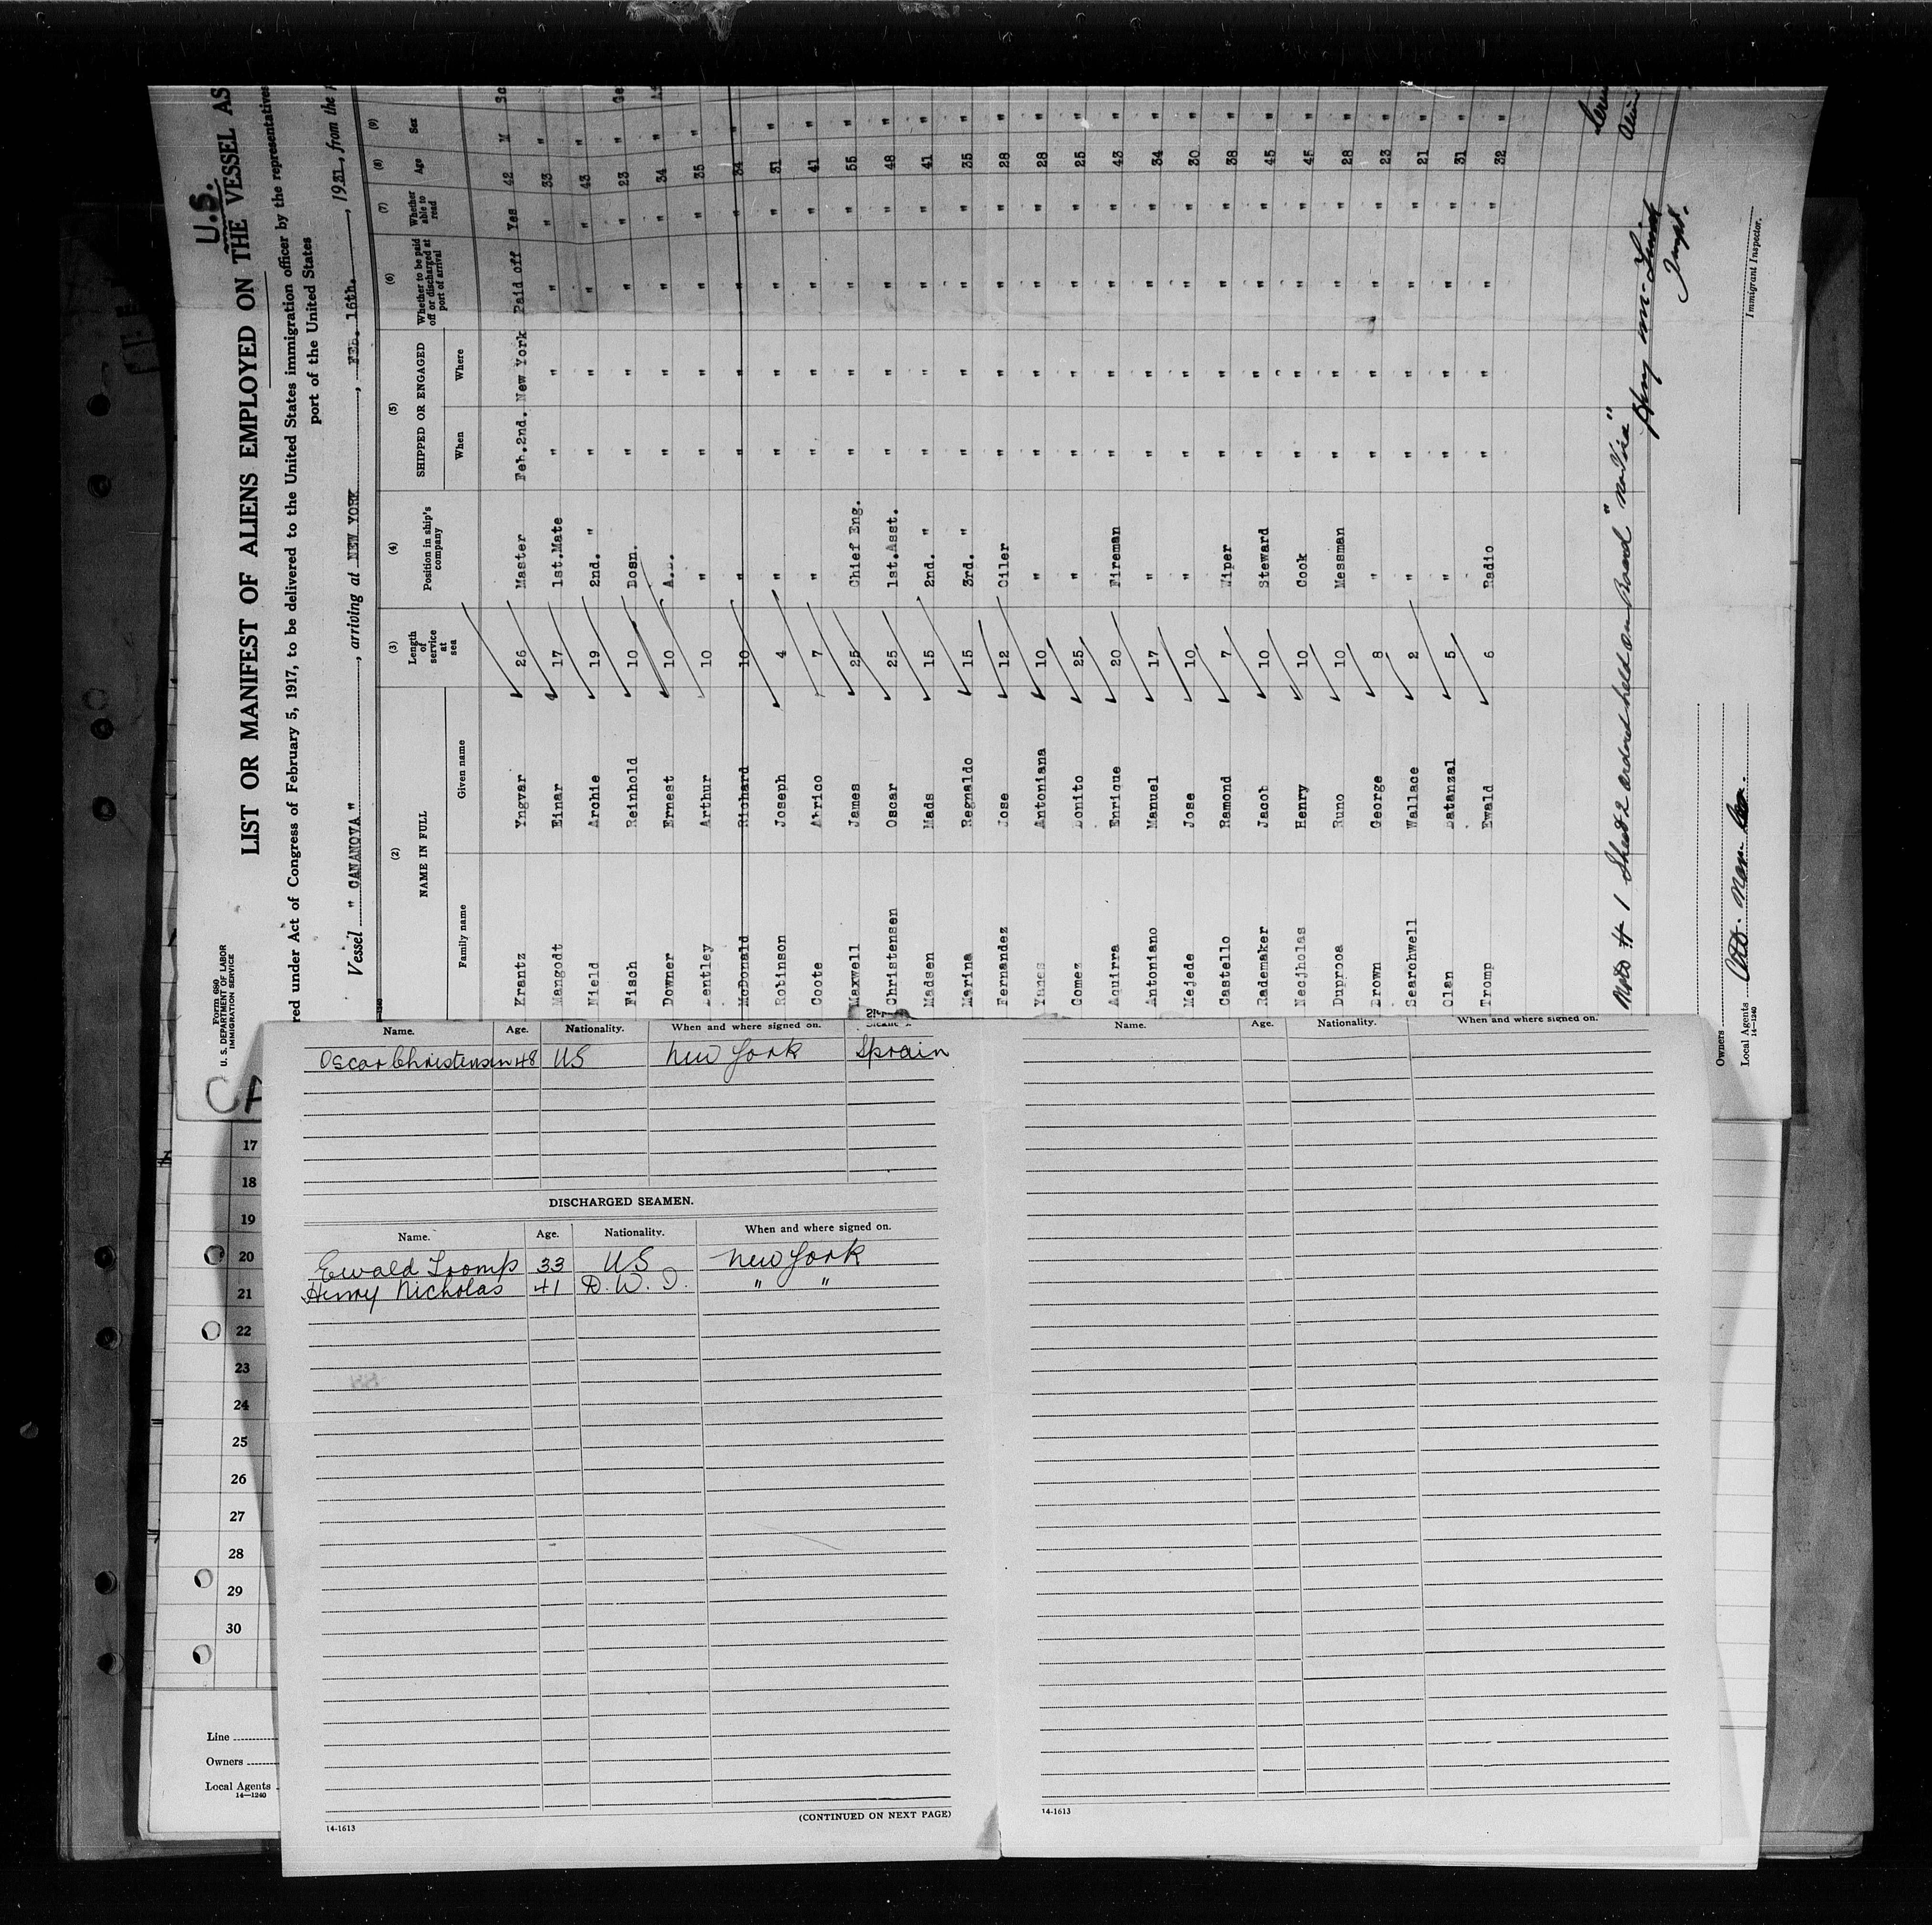 U.S.
Form 680
U. S. DEPARTMENT OF LABOR
IMMIGRATION SERVICE
LIST OR MANIFEST OF ALIENS EMPLOYED ON THE VESSEL AS
red under Act of Congress of February 5, 1917, to be delivered to the United States immigration officer by the representatives
port of the United States
Vessel " CANANOVA ", arriving at NEW YORK, FEB. 16th., 1931, from the
(2) (3) (4) (5) (6) (7) (8) (9)
NAME IN FULL Length of service at sea Position in ship's company SHIPPED OR ENGAGED Whether to be paid off or discharged at port of arrival Whether able to read Age Sex
Family name Given name When Where
Krantz Yngvar 26 Master Feb.2nd. New York Paid off Yes 42 M Sc
Mangodt Einar 17 1st.Mate " " " " 33 "
Nield Archie 19 2nd. " " " " " 43 "
Fisch Reinhold 10 Bosn. " " " " 23 " Ge
Downer Ernest 10 A.B. " " " " 34 "
Bentley Arthur 10 " " " " " 35 "
McDonald Richard 10 " " " " " 34 "
Robinson Joseph 4 " " " " " 31 "
Coote 7 " " " " " 41 "
Maxwell James 25 Chief Eng. " " " " 55 "
Christensen Oscar 25 1st.Asst. " " " " 48 "
Madsen Mads 15 2nd. " " " " " 41 "
Marina Regnaldo 15 3rd. " " " " " 35 "
Fernandez Jose 12 Oiler " " " " 28 "
Yanes Antoniana 10 " " " " " 28 "
Gomez Bonito 25 " " " " " 25 "
Aquirra Enrique 20 Fireman " " " " 43 "
Antoniano Manuel 17 " " " " " 34 "
Mejede Jose 10 " " " " " 30 "
Castello Ramond 7 Wiper " " " " 38 "
Rademaker Jacob 10 Steward " " " " 45 "
Nedjholas Henry 10 Cook " " " " 45 "
Duprooa Runo 10 Messman " " " " 28 "
Brown George 8 " " " " " 23 "
Searchwell Wallace 2 " " " " " 21 "
Olan Batanzal 5 " " " " " 31 "
Tromp Ewald 6 Radio " " " " 32 "
# 1 Sheet 2 ordered held on Board "no Visa"
Immigrant Inspector.
Owners
Local Agents
14—1240
CA
Name. Age. Nationality. When and where signed on.
Oscar Christensen 48 US New York Sprain
DISCHARGED SEAMEN.
Name. Age. Nationality. When and where signed on.
Ewald Tromp 33 US New York
Henry Nicholas 41 D. W. I. " "
(CONTINUED ON NEXT PAGE)
14-1613
Name. Age. Nationality. When and where signed on.
14-1613
17
18
19
20
21
22
23
24
25
26
27
28
29
30
Line
Owners
Local Agents
14—1240